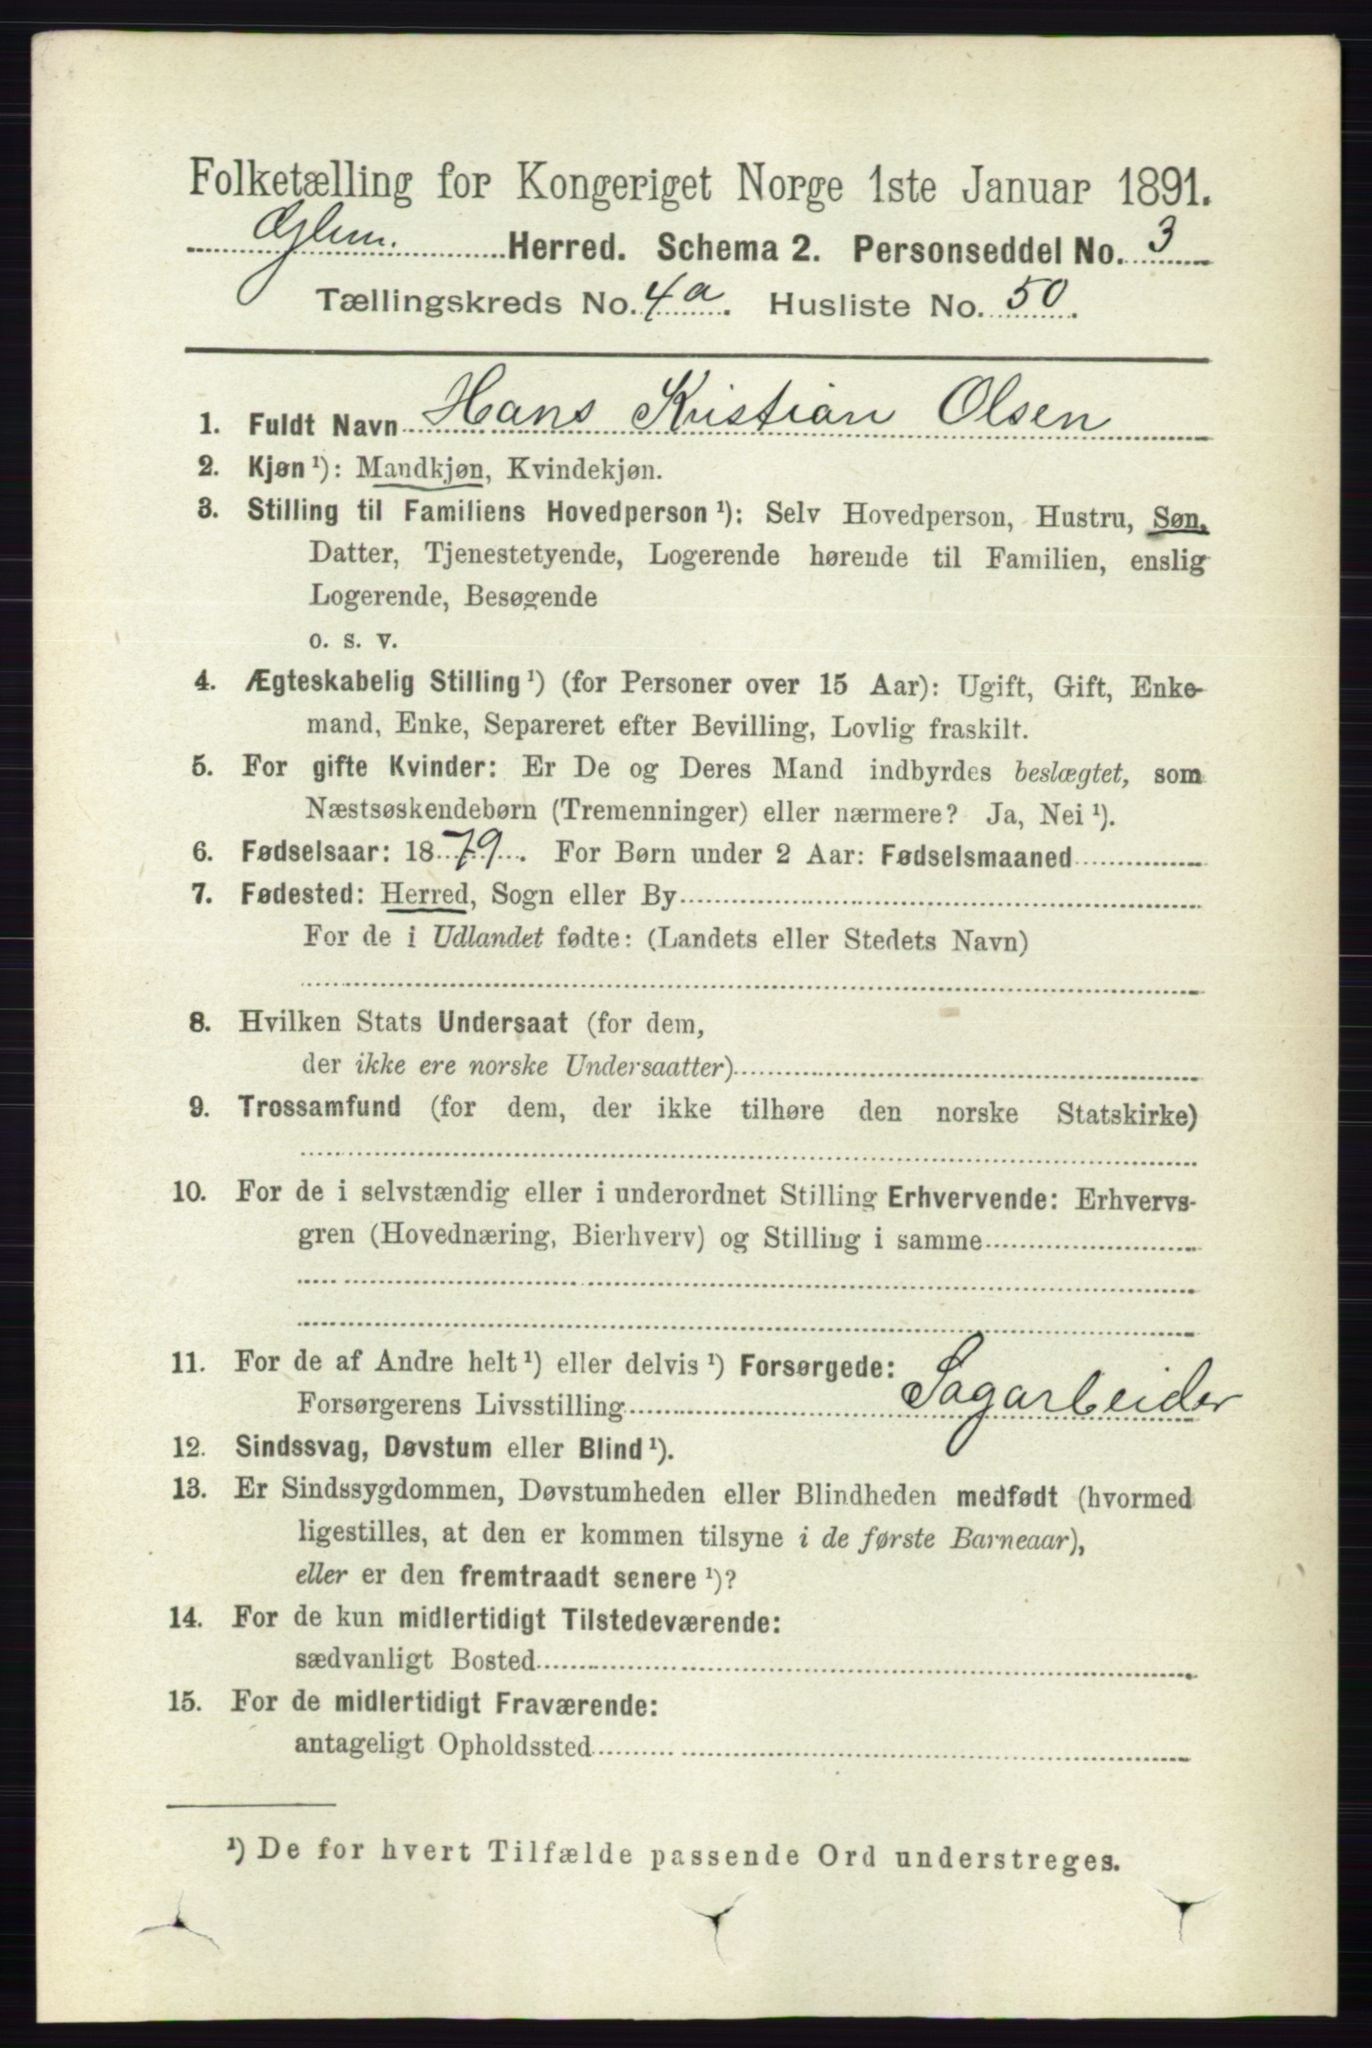 Folketælling for Kongeriget Norge 1ste Januar 1891.
Glem. Herred. Schema 2. Personseddel No. 3
Tællingskreds No. 4a. Husliste No. 50.
1. Fuldt Navn Hans Kristian Olsen
2. Kjøn ¹): Mandkjøn, Kvindekjøn.
3. Stilling til Familiens Hovedperson ¹): Selv Hovedperson, Hustru, Søn,
Datter, Tjenestetyende, Logerende hørende til Familien, enslig
Logerende, Besøgende
o. s. v.
4. Ægteskabelig Stilling ¹) (for Personer over 15 Aar): Ugift, Gift, Enke-
mand, Enke, Separeret efter Bevilling, Lovlig fraskilt.
5. For gifte Kvinder: Er De og Deres Mand indbyrdes beslægtet, som
Næstsøskendebørn (Tremenninger) eller nærmere? Ja, Nei ¹).
6. Fødselsaar: 1879. For Børn under 2 Aar: Fødselsmaaned
7. Fødested: Herred, Sogn eller By
For de i Udlandet fødte: (Landets eller Stedets Navn)
8. Hvilken Stats Undersaat (for dem,
der ikke ere norske Undersaatter)
9. Trossamfund (for dem, der ikke tilhøre den norske Statskirke)
10. For de i selvstændig eller i underordnet Stilling Erhvervende: Erhvervs-
gren (Hovednæring, Bierhverv) og Stilling i samme
11. For de af Andre helt ¹) eller delvis ¹) Forsørgede:
Forsørgerens Livsstilling Sagarbeider
12. Sindssvag, Døvstum eller Blind ¹).
13. Er Sindssygdommen, Døvstumheden eller Blindheden medfødt (hvormed
ligestilles, at den er kommen tilsyne i de første Barneaar),
eller er den fremtraadt senere ¹)?
14. For de kun midlertidigt Tilstedeværende:
sædvanligt Bosted
15. For de midlertidigt Fraværende:
antageligt Opholdssted
¹) De for hvert Tilfælde passende Ord understreges.